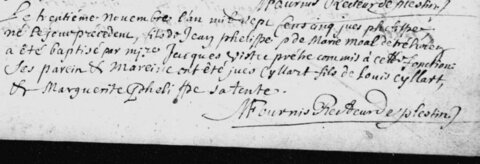 MFournis Recteur de plestin
Le trentiéme novembre l'an mil sept cens cinq jues phelippe
né le jour precedent, fils de Jean phelippe & de Marie moal de
a été baptisé par mire Jacques prêtre commis à cette fonction
Ses parein & mareine ont été jues Cyllart fils de Louis Cyllart,
& Marguerite pheli ppe sa tente.
MFournis Recteur de plestin